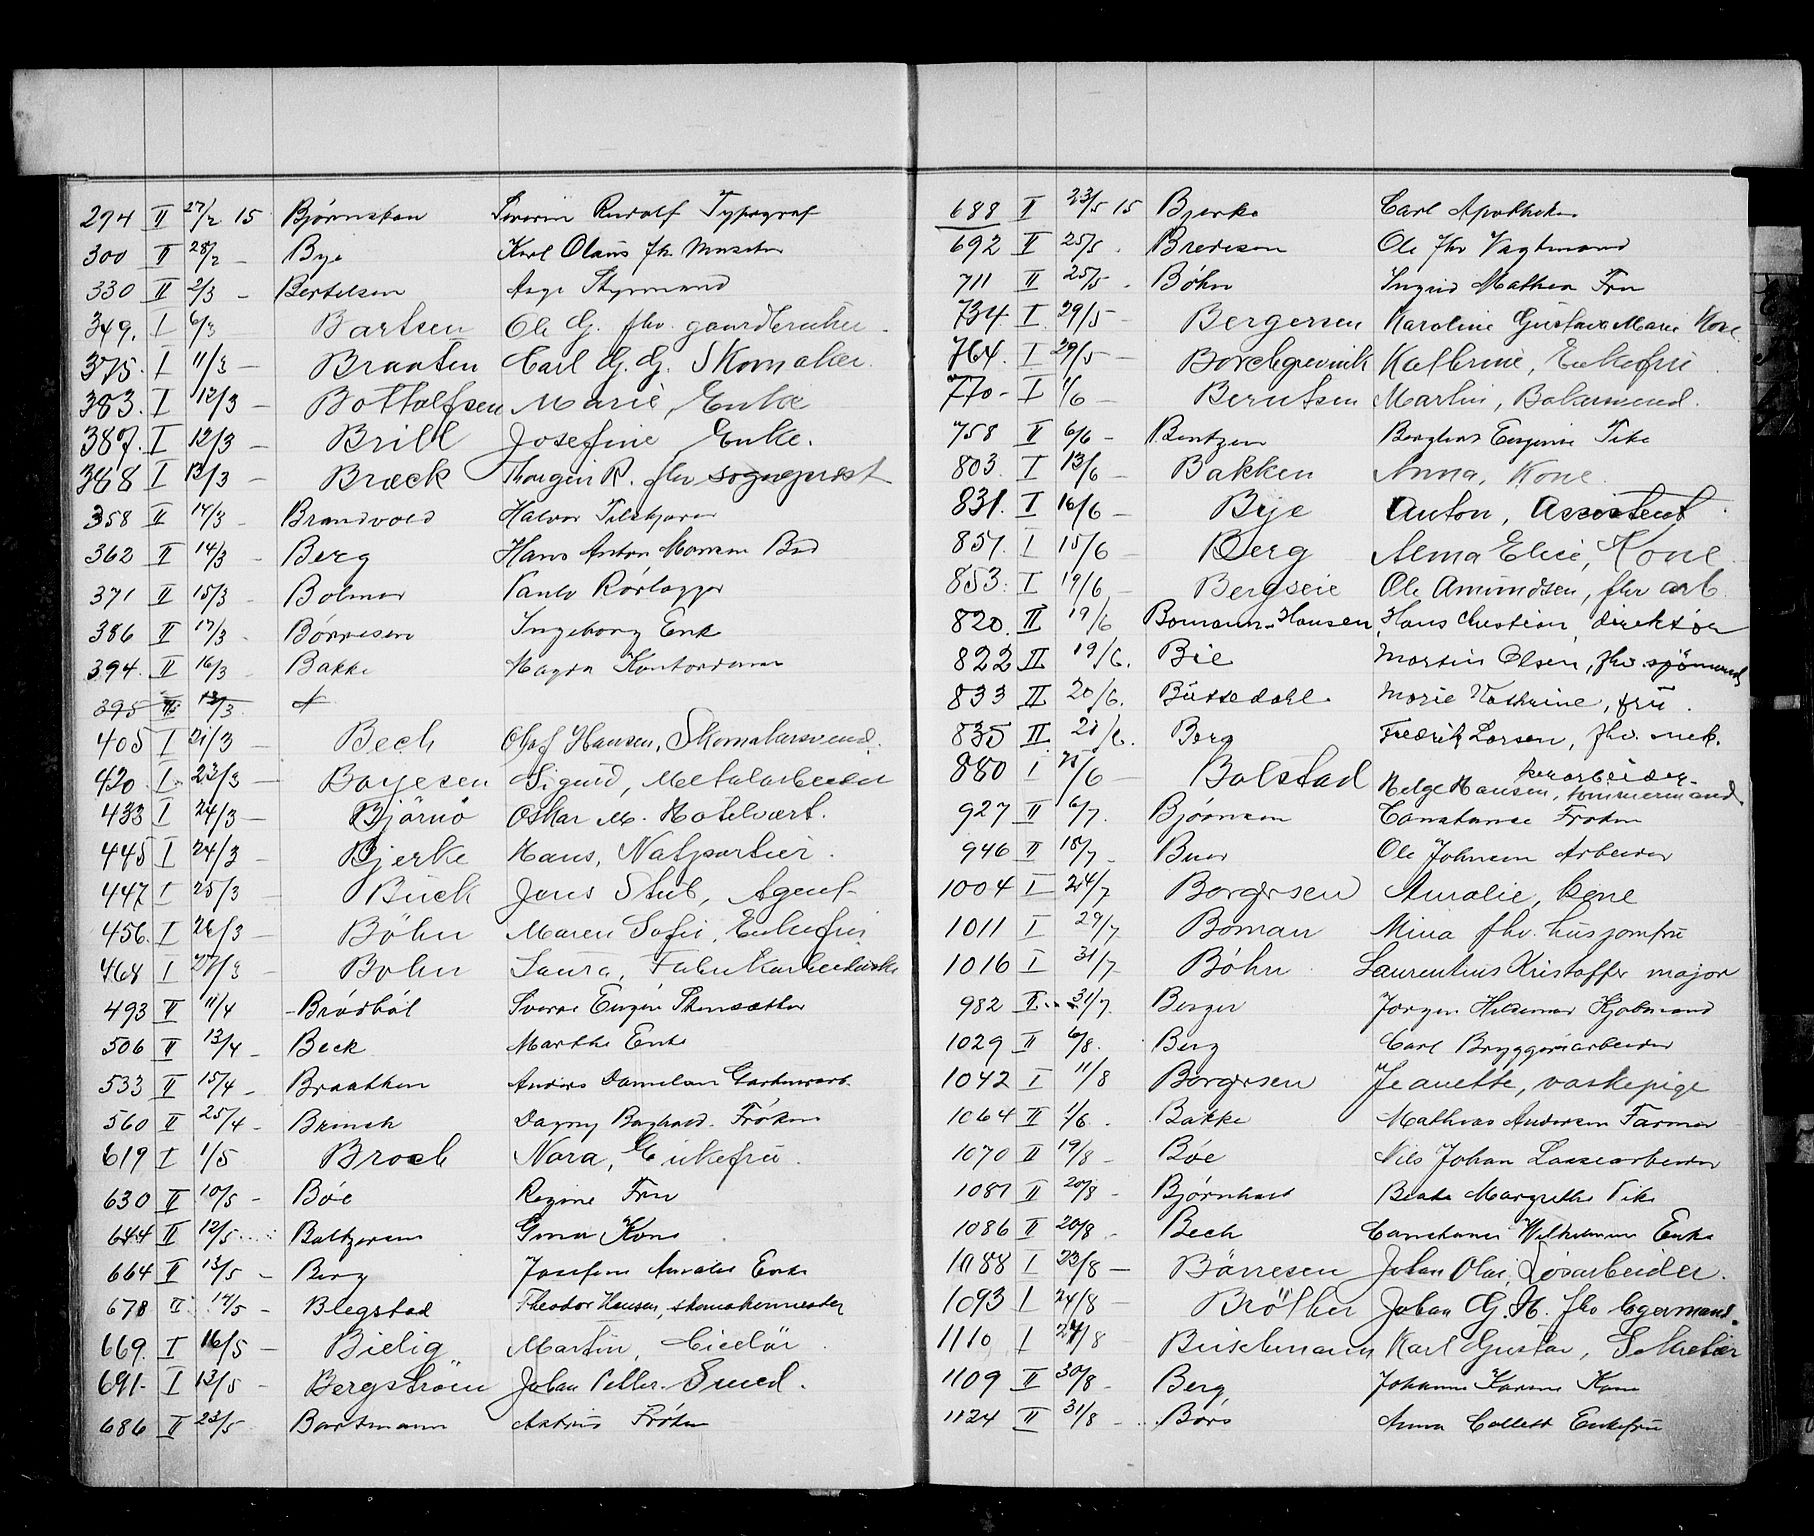 294 II 27/2 15 Bjørnstan Severin Rudolf Typograf
300 II 28/2 – Bye Karl Olaus fhv
330 II 2/3 – Bertelsen Aage Styrmand
349. I 6/3 Bartsen Ole G. fhv. gaardbruker –
375. I 11/3 – Braaten Carl G. G. Skomaker.
383. I 12/3 – Bottolfsen Marie, Enke
387. I 12/3 – Brill Josefine Enke.
388 I 13/3 – Bræck Thorgein R. fhv sogneprest
358 II 14/3 – Brandvold Halvor
362 II 14/3 – Berg Hans Anton Monsen Bud
371 II 15/3 – Bolmer Paulv Rørlægger
386 II 17/3 – Børresen Ingeborg Enk
394. II 16/3 – Bakke Magda Kontordame
395 II 13/3
405 I 21/3 – Bech Olaf Hansen, Skomakersvend.
420. I 23/3 – Boyesen Sigurd, Metalarbeider
433 I 24/3 – Bjørnø Oskar M. Hotelvært.
445 I 24/3 – Bjerke Hans, Natportier.
447 I 25/3 – Buck Jens Stub, Agent
456. I 26/3 – Böhn Maren Sofie, Enkefru
468 I 27/3 – Bohn Laura, Fabrikarbeiderske
493 II 11/4 – Brødbøl Sverre Eugen
506 II 13/4 – Beck Marthe Enke
533 II 15/4 – Braathen Anders Danielsen Gartnerarb.
560 II 25/4 – Brinch Dagny Frøken
619 I 1/5 Broch Nora, Enkefru.
630 II 10/5 – Bøe Regine Fru
644 II 12/5 Baltzersen Gina Kone
664 II 13/5 – Berg Josefine Amalie Enke
678 II 14/5 – Blegstad Theodor Hansen, skomakermester
669. I 16/5 – Bielig Martin, Ciselør.
691– I 13/5 – Bergström Johan Petter. Smed.
686 II 23/5 Bartmann Frøken
688 II 23/5 15 Bjerke Carl Apotheker
692 II 25/5 . Bredesen Ole fhv Vagtmand
711 II 25/5 . Bøhn Ingrid Mathea Fru
734. I 29/5 – Bergersen Karoline Gustava Marie Kone
764. I 29/5 – Borchgrevink Kathrine, Enkefru
770– I 1/6 – Berntsen Martin, Bakersvend.
758 II 6/6 – Bentzen Eugenie Pike
803. I 13/6 – Bakken Anna, Kone.
831. I 16/6 – Bye Anton, Assistent.
851. I 15/6 – Berg Alma Elise, Kone.
853. I 19/6 – Bergseie Ole Amundsen, fhv arb.
820. II 19/6 Bomann-Hansen, Hans Christian, direktør
822 II 19/6. Bie Martin Olsen, fhv. sjömand
833 II 20/6. Büssedahl Marie Kathrine, fru.
835 II 21/6. Berg Fredrik Larsen, fhv. mek.
880 I 25/6 – Bolstad Helge Hansen, tømmermand
927 II 6/7. Bjørnsen Constance Frøken
946 II 18/7 – Buer Ole Johnsen Arbeider
1004 I 24/7 Borgersen Amalie, kone
1011 I 29/7 Boman Mina fhv. husjomfru
1016 I 31/7 Bøhn. Laurentius Kristoffer major
982 II 31/7. Berger Jørgen Hildemar Kjøbmand
1029 II 6/8. Berg Carl Bryggeriarbeider
1042 I 11/8 Borgersen Jeanette, vaskepige
1064 II 1/6. Bakke Mathias Andersen Farmer
1070 II 19/8 – Bøe Nils Johan Lossearbeider
1081 II 20/8 – Bjørnhard Beate Margrethe Pike
1086 II 20/8 – Bech Constance Vilhelmine Enke
1088 I 23/8 – Börresen Johan Olai, Løsarbeider.
1093 I 24/8 – Bröther Johan G. H. fhv lagermand.
1110 I 27/8 – Buschmann Karl Gustav, Sekretær
1109 II 30/8 – Berg Johanne Karine Kone
1124 II 31/8 – Børs Anna Collett Enkefru